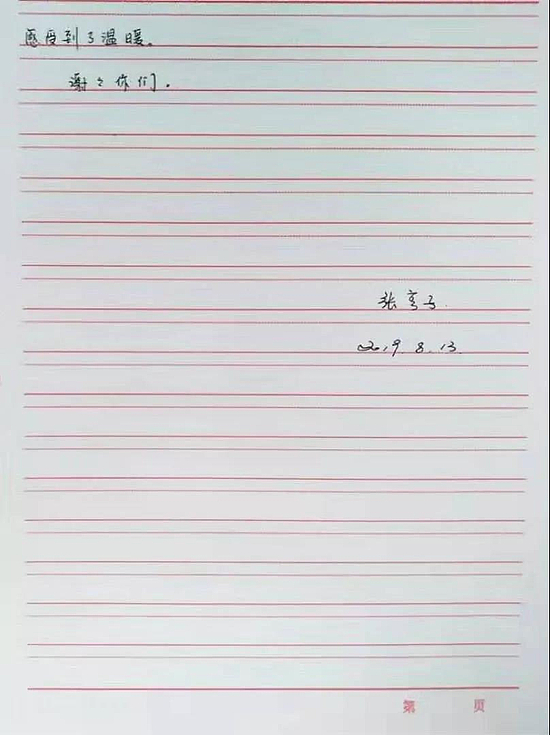 感受到了温暖。
谢々你们.
张亨子
2019.8.13.
第 页